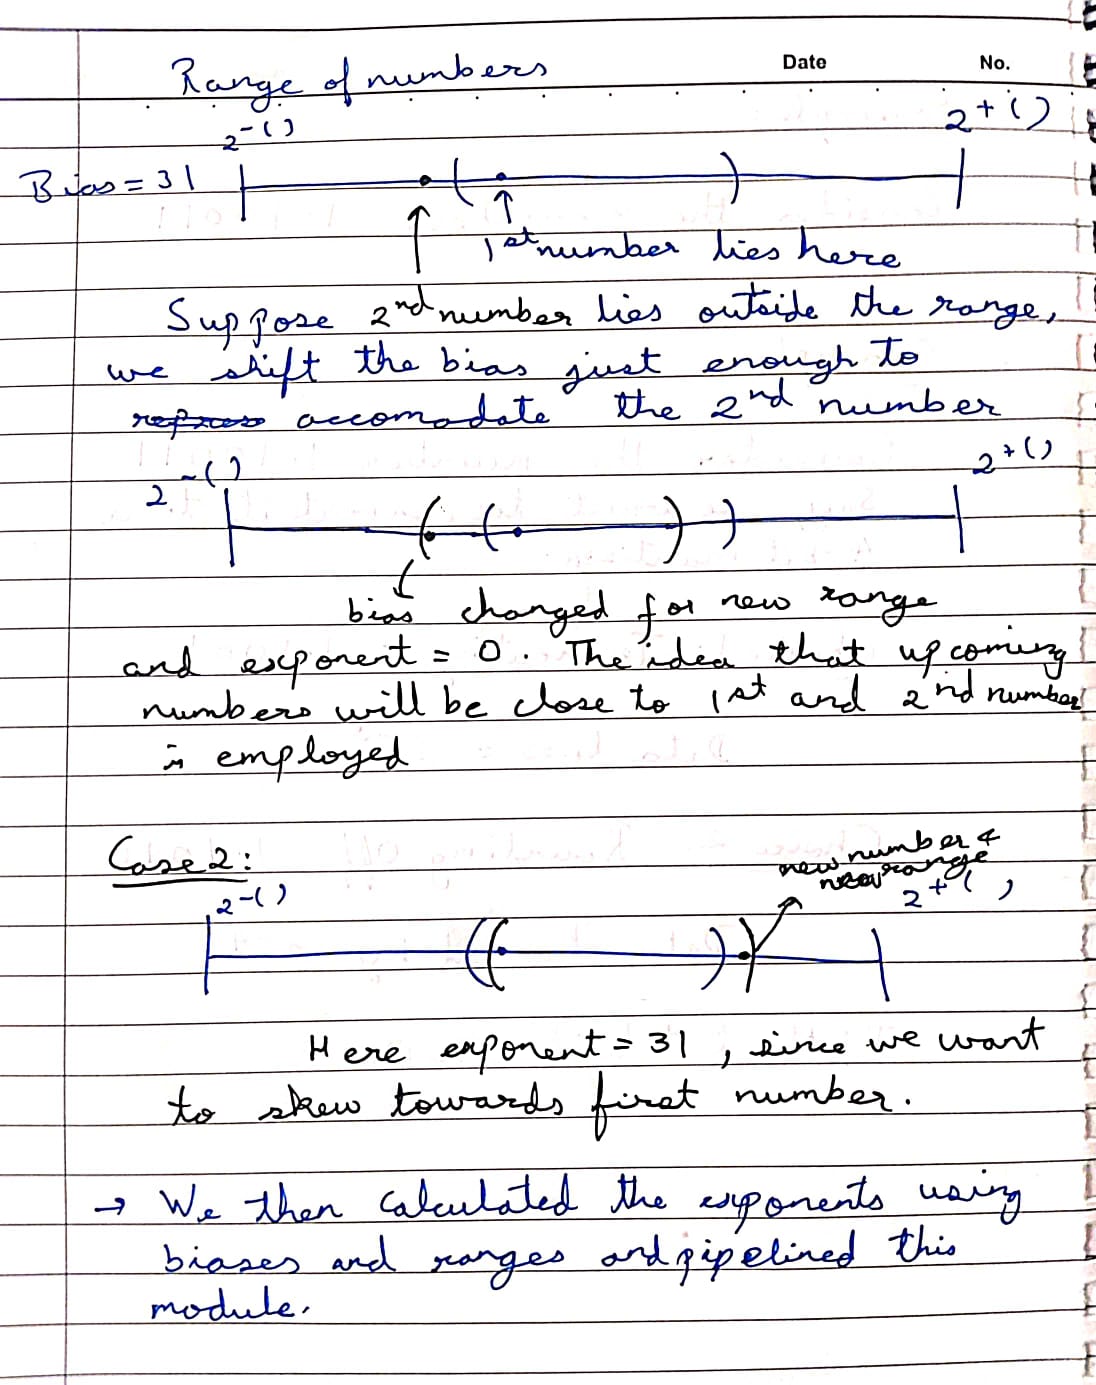 Range of numbers
Date
No.
2^-( )
2^+( )
Bias = 31
1st number lies here
Suppose 2nd number lies outside the range,
we shift the bias just enough to
accomodate the 2nd number
2^-( )
2^+( )
bias changed for new range
and exponent = 0. The idea that upcoming
numbers will be close to 1st and 2nd number
is employed
Case 2:
new number &
new range
2^-( )
2^+( )
Here exponent = 31, since we want
to skew towards first number.
→ We then calculated the exponents using
biases and ranges and pipelined this
module.